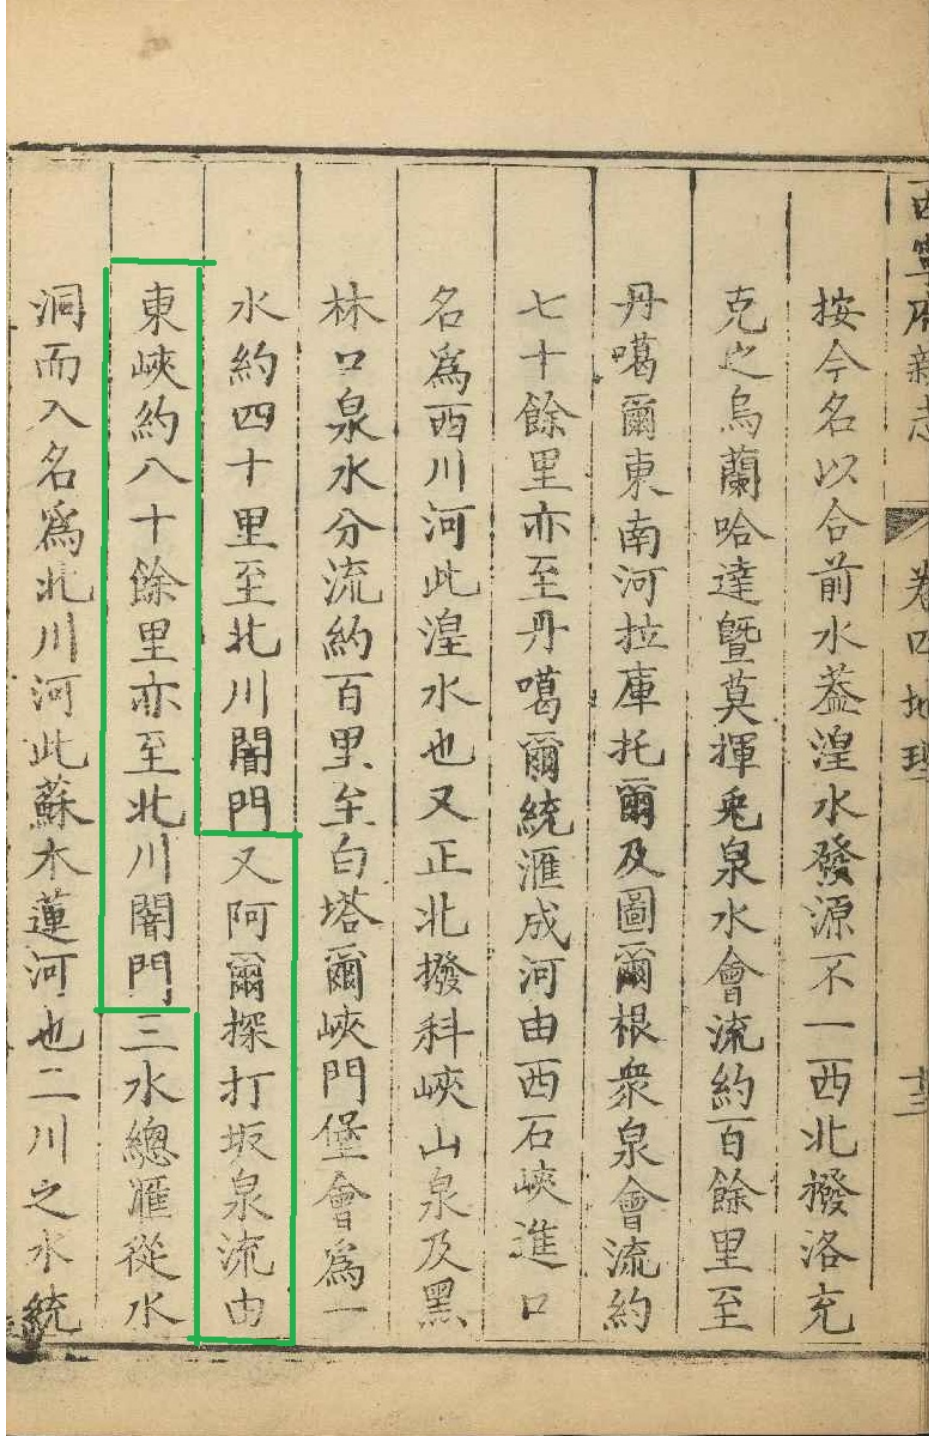 西寧府新志 卷四 地理 十三
按今名以合前水葢湟水發源不一西北撥洛充
克之烏蘭哈達暨莫揮兎泉水會流約百餘里至
丹噶爾東南河拉庫托爾及圖爾根衆泉會流約
七十餘里亦至丹噶爾統滙成河由西石峽進口
名爲西川河此湟水也又正北撥科峽山泉及黑
林口泉水分流約百里至白塔爾峽門堡會爲一
水約四十里至北川闇門又阿爾探打坂泉流由
東峽約八十餘里亦至北川闇門三水總滙從水
洞而入名爲北川河此蘇木蓮河也二川之水統